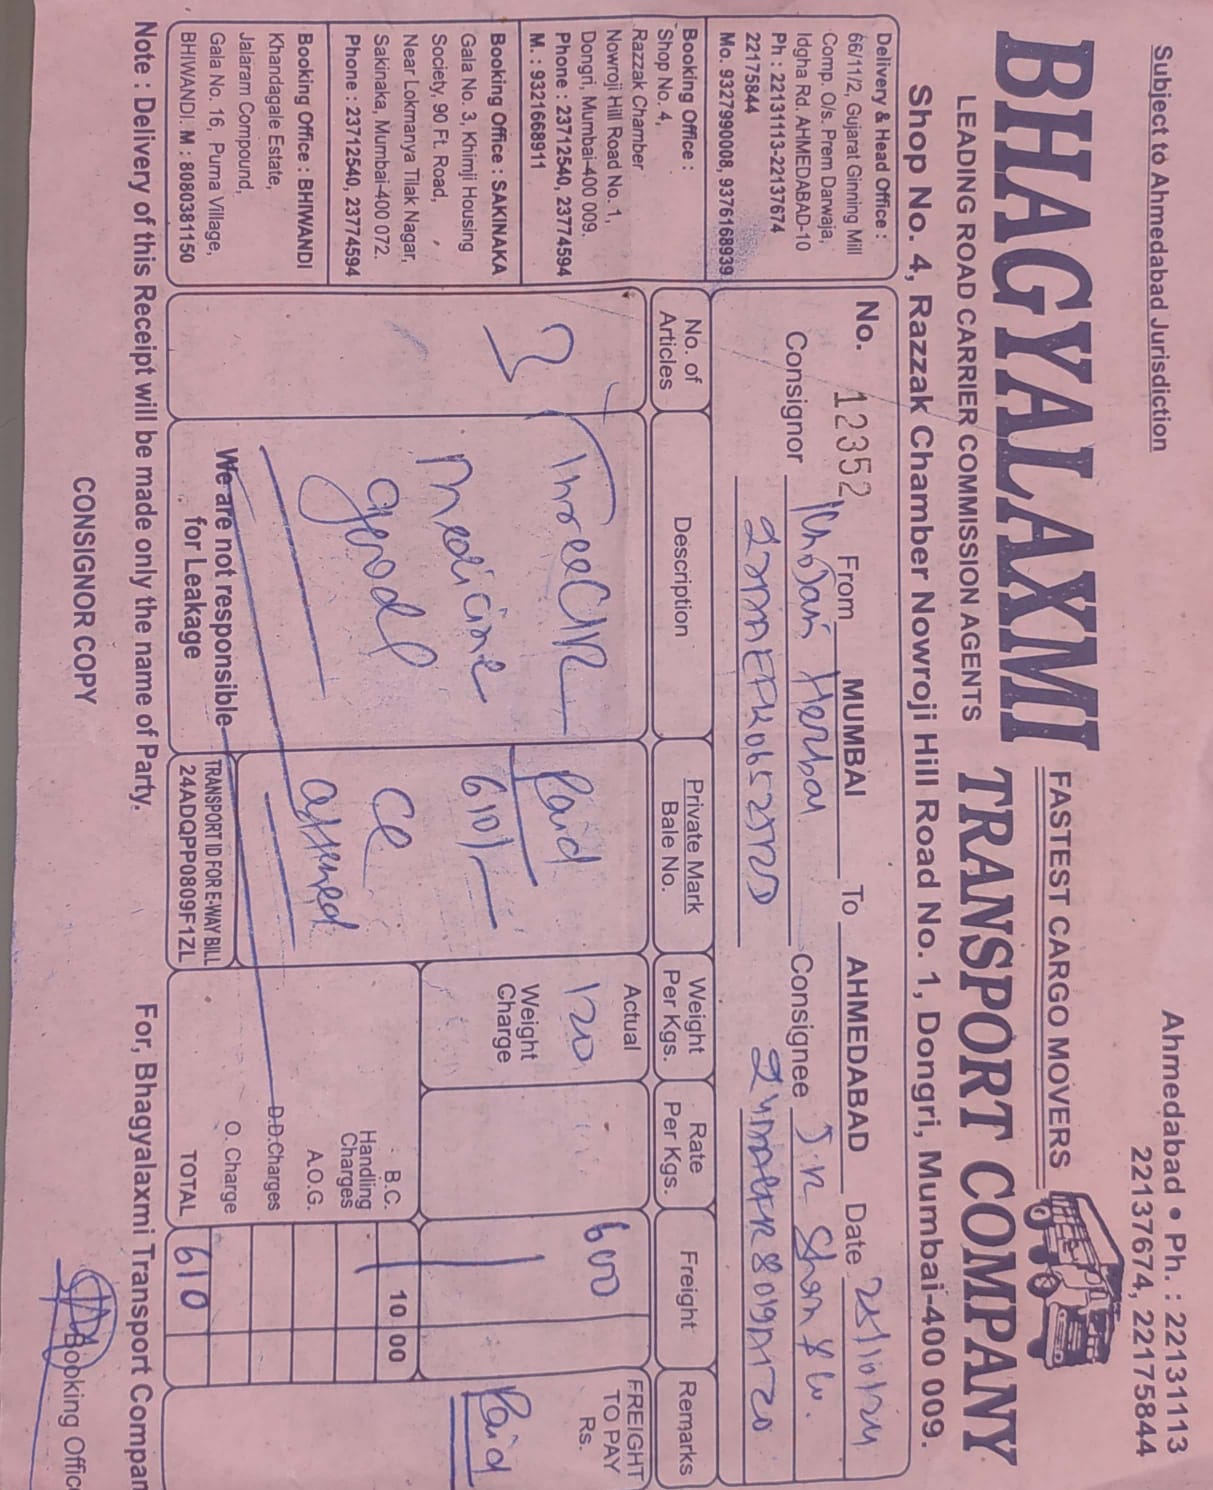 Subject to Ahmedabad Jurisdiction
Ahmedabad • Ph. : 22131113
22137674, 22175844
BHAGYALAXMI
FASTEST CARGO MOVERS
TRANSPORT COMPANY
LEADING ROAD CARRIER COMMISSION AGENTS
Shop No. 4, Razzak Chamber Nowroji Hill Road No. 1, Dongri, Mumbai-400 009.
Delivery & Head Office :
66/11/2, Gujarat Ginning Mill
Comp. O/s. Prem Darwaja,
Idgha Rd. AHMEDABAD-10
Ph : 22131113-22137674
22175844
Mo. 9327990008, 9376168939
Booking Office :
Shop No. 4,
Razzak Chamber
Nowroji Hill Road No. 1,
Dongri, Mumbai-400 009.
Phone : 23712540, 23774594
M. : 9321668911
Booking Office : SAKINAKA
Gala No. 3, Khimji Housing
Society, 90 Ft. Road,
Near Lokmanya Tilak Nagar,
Sakinaka, Mumbai-400 072.
Phone : 23712540, 23774594
Booking Office : BHIWANDI
Khandagale Estate,
Jalaram Compound,
Gala No. 16, Purna Village,
BHIWANDI. M : 8080381150
No. 12352 From MUMBAI To AHMEDABAD Date
Consignor Herbal Consignee J.R Shah & Co.
No. of Articles
Description
Private Mark
Bale No.
Weight
Per Kgs.
Rate
Per Kgs.
Freight
Remarks
3
Three
medicine
good
We are not responsible
for Leakage
Paid
610/-
TRANSPORT ID FOR E-WAY BILL
24ADQPP0809F1ZL
Actual
120
Weight
Charge
600
FREIGHT
TO PAY
Rs.
Paid
B.C. 10 00
Handling
Charges
A.O.G.
D.D.Charges
O. Charge
TOTAL 610
Note : Delivery of this Receipt will be made only the name of Party.
For, Bhagyalaxmi Transport Compan
CONSIGNOR COPY
Booking Office